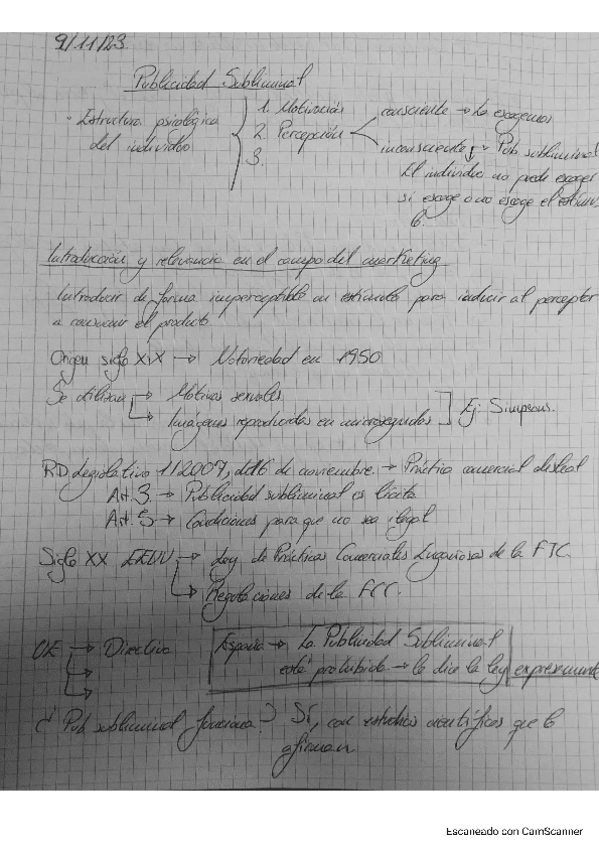 9/11/23.
Publicidad Subliminal
- Estructura psicológica del individuo
1. Motivación
2. Percepción
3.
consciente → La escogemos
inconsciente → Pub. subliminal
El individuo no puede escoger
si escoge o no escoge el estímu
lo.
Introducción y relevancia en el campo del marketing
Introducir de forma imperceptible un estímulo para inducir al perceptor
a consumir el producto
Origen siglo XIX → Notoriedad en 1950
Se utilizan → Motivos sexuales
→ Imágenes reproducidas en microsegundos
Ej: Simpsons.
RD legislativo 1/2007, del 16 de noviembre. → Práctica comercial desleal
Art. 3. → Publicidad subliminal es lícita
Art. 5 → Condiciones para que no sea ilegal
Siglo XX EEUU → Ley de Prácticas Comerciales Engañosas de la FTC.
→ Regulaciones de la FCC.
UE → Directiva
→
→
España → La Publicidad Subliminal
está prohibida → lo dice la ley expresamente
¿Pub subliminal funciona? Sí, con estudios científicos que lo
afirman
Escaneado con CamScanner